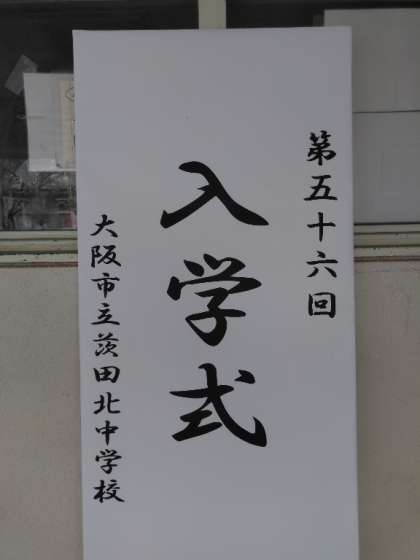 第五十六回
入学式
大阪市立茨田北中学校